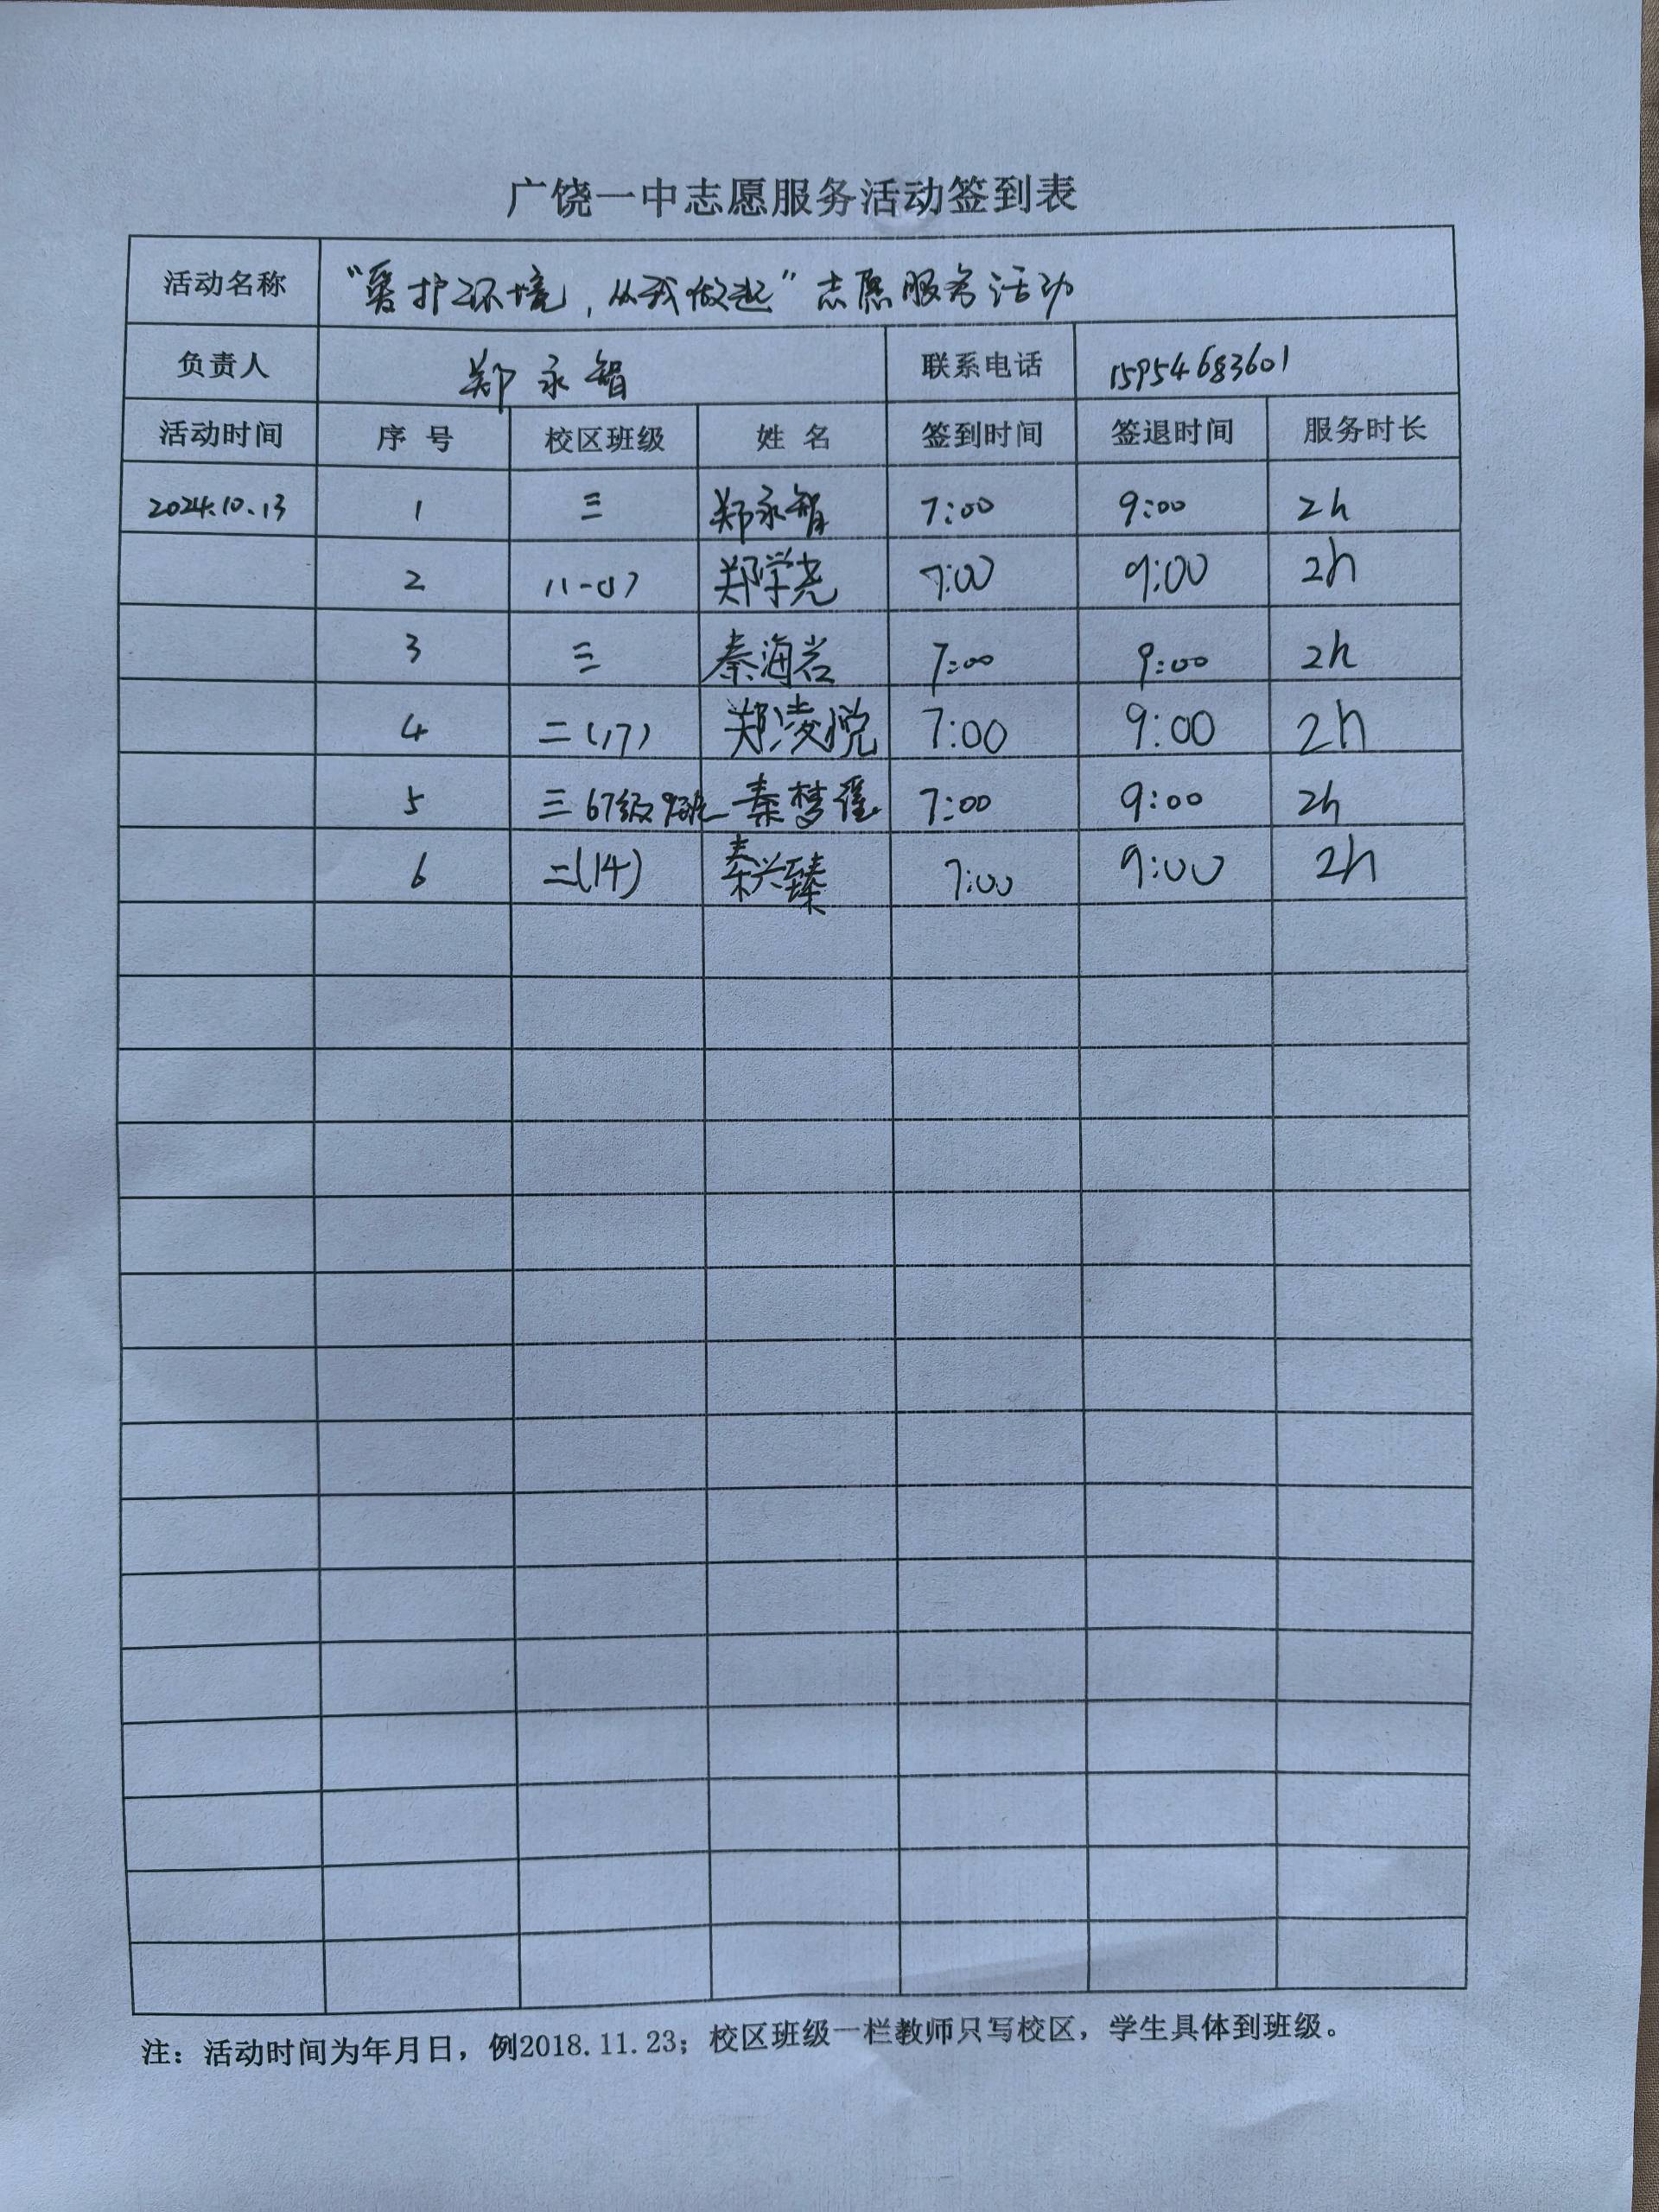 广饶一中志愿服务活动签到表
活动名称 "爱护环境，从我做起"志愿服务活动
负责人 郑永智 联系电话 15954683601
活动时间 序号 校区班级 姓名 签到时间 签退时间 服务时长
2024.10.13 1 三 郑永智 7:00 9:00 2h
2 郑学尧 7:00 9:00 2h
3 三 秦海岩 7:00 9:00 2h
4 二(17) 郑凌悦 7:00 9:00 2h
5 三67级9班 秦梦瑶 7:00 9:00 2h
6 二(14) 秦兴臻 7:00 9:00 2h
注：活动时间为年月日，例2018.11.23；校区班级一栏教师只写校区，学生具体到班级。